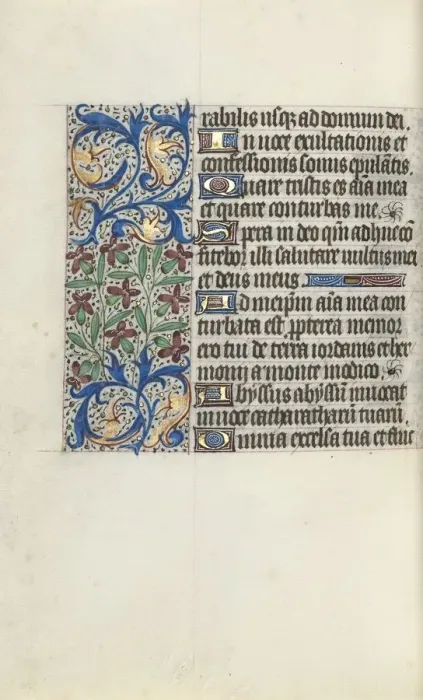 rabilis usq; ad domum dei.
In uoce exultationis et
confessionis sonus epulātis.
Quare tristis es aīa mea
et quare conturbas me.
Spera in deo qm̄ adhuc cō
fitebor illi salutare uultus mei
et deus meus
Ad meip̄m aīa mea con
turbata est. ꝓpterea memor
ero tui de terra iordanis et her
monij a monte modico.
Abyssus abyssū inuocat
in uoce catharatharū tuarū.
Omnia excelsa tua et fluc